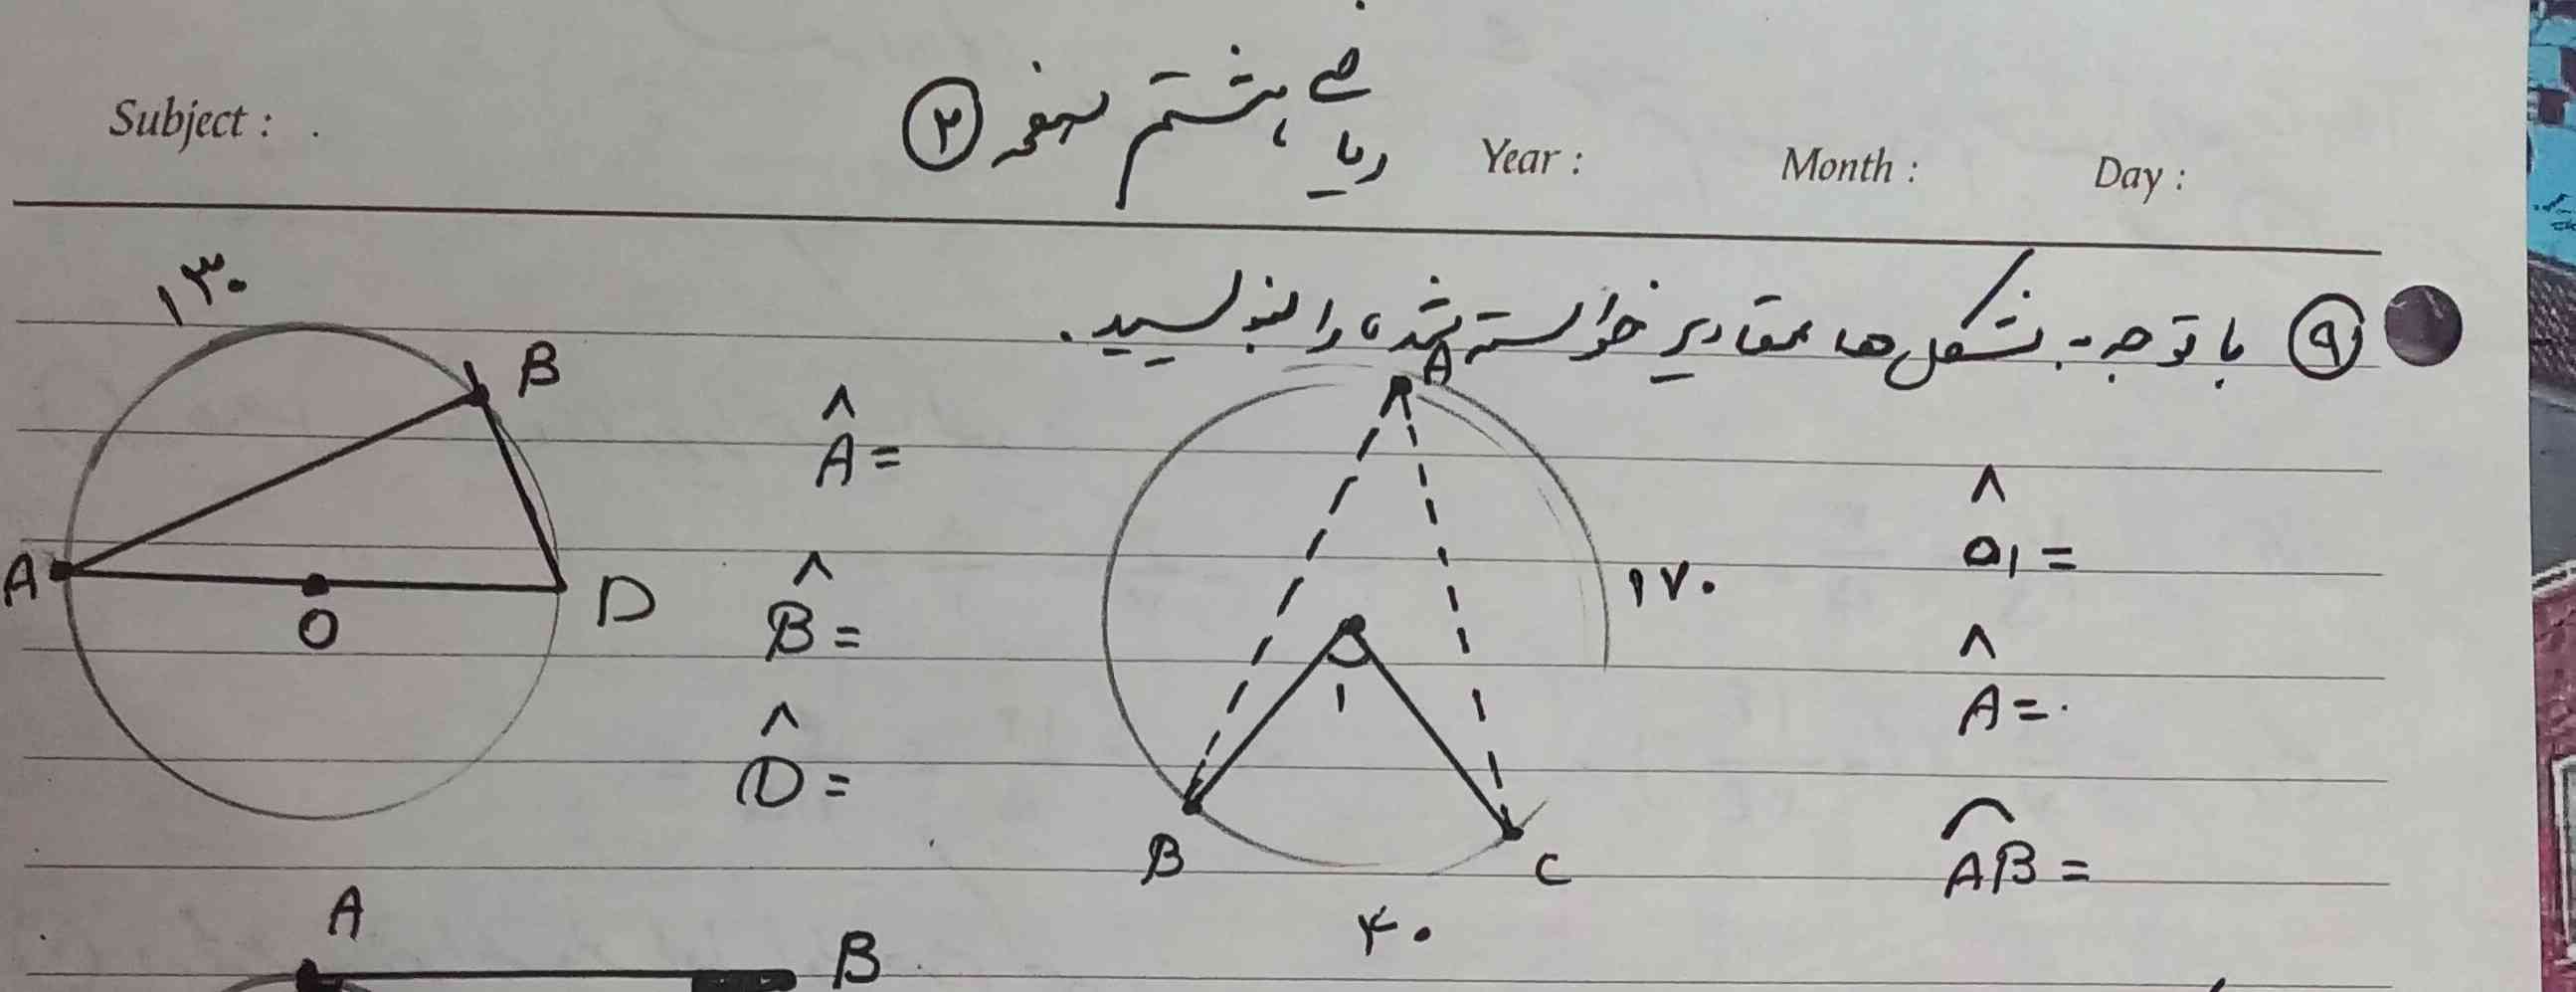 ریاضی هشتم صفحه ۲
Subject :
Year :
Month :
Day :
۹ با توجه به شکل ها مقادیر خواسته شده را بنویسید.
۱۳۰
B
A
O
D
Â =
B̂ =
D̂ =
A
۱۷۰
۱
B
C
۴۰
Ô₁ =
Â =
A͡B =
A
B